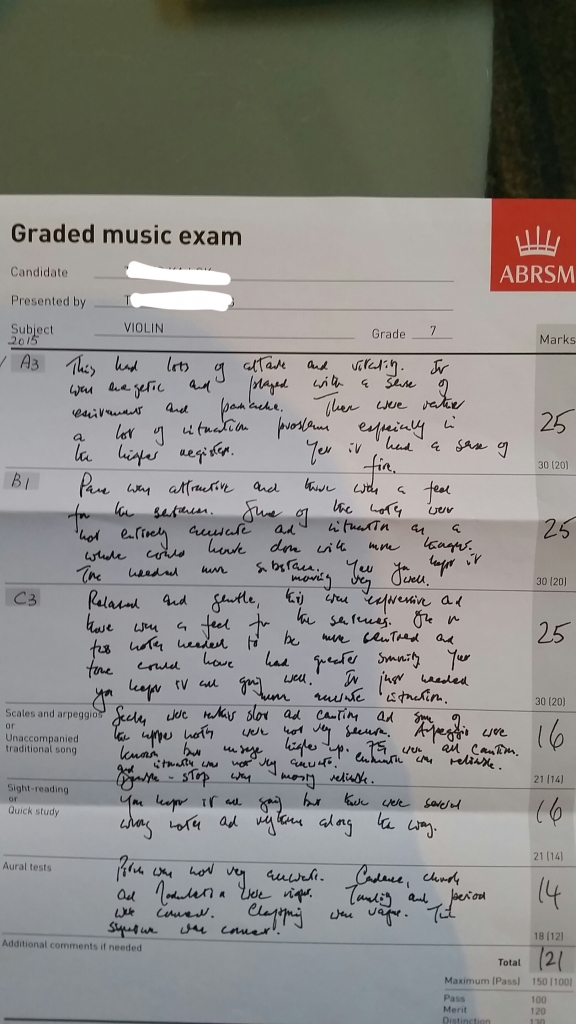 Graded music exam
ABRSM
Candidate
Presented by T
Subject VIOLIN Grade 7 Marks
2015
A3 This had lots of attack and vitality. It
was energetic and played with a sense of
and panache. There were rather
a lot of intonation problems especially in 25
the higher register. Yet it had a sense of
fire. 30 (20)
B1 Pace was attractive and there was a feel
for the sentences. Some of the notes were
not entirely accurate and intonation as a 25
whole could have done with more
Tone needed more substance. Yet you kept it
moving very well. 30 (20)
C3 Relaxed and gentle, this was expressive and
there was a feel for the sentences. One or
few notes needed to be more centred and 25
tone could have had greater Yet
you kept it all going well. It just needed
more accurate intonation. 30 (20)
Scales and arpeggios
or
Unaccompanied
traditional song
Scales were rather slow and cautious and some of
the upper notes were not very secure. Arpeggios were 16
known but higher up. 7ths were all cautious.
and intonation was not very accurate. chromatic was reliable.
Double-stop was mostly reliable. 21 (14)
Sight-reading
or
Quick study
You kept it all going but there were several 16
wrong notes and rhythms along the way.
21 (14)
Aural tests
Pitch was not very accurate. Cadence, chords
and Modulation were vague. Tonality and period 14
were correct. Clapping was vague. Time
signature was correct. 18 (12)
Additional comments if needed
Total 121
Maximum (Pass) 150 (100)
Pass 100
Merit 120
Distinction 130